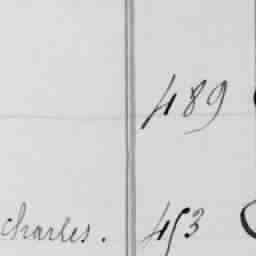 489
Charles. 453